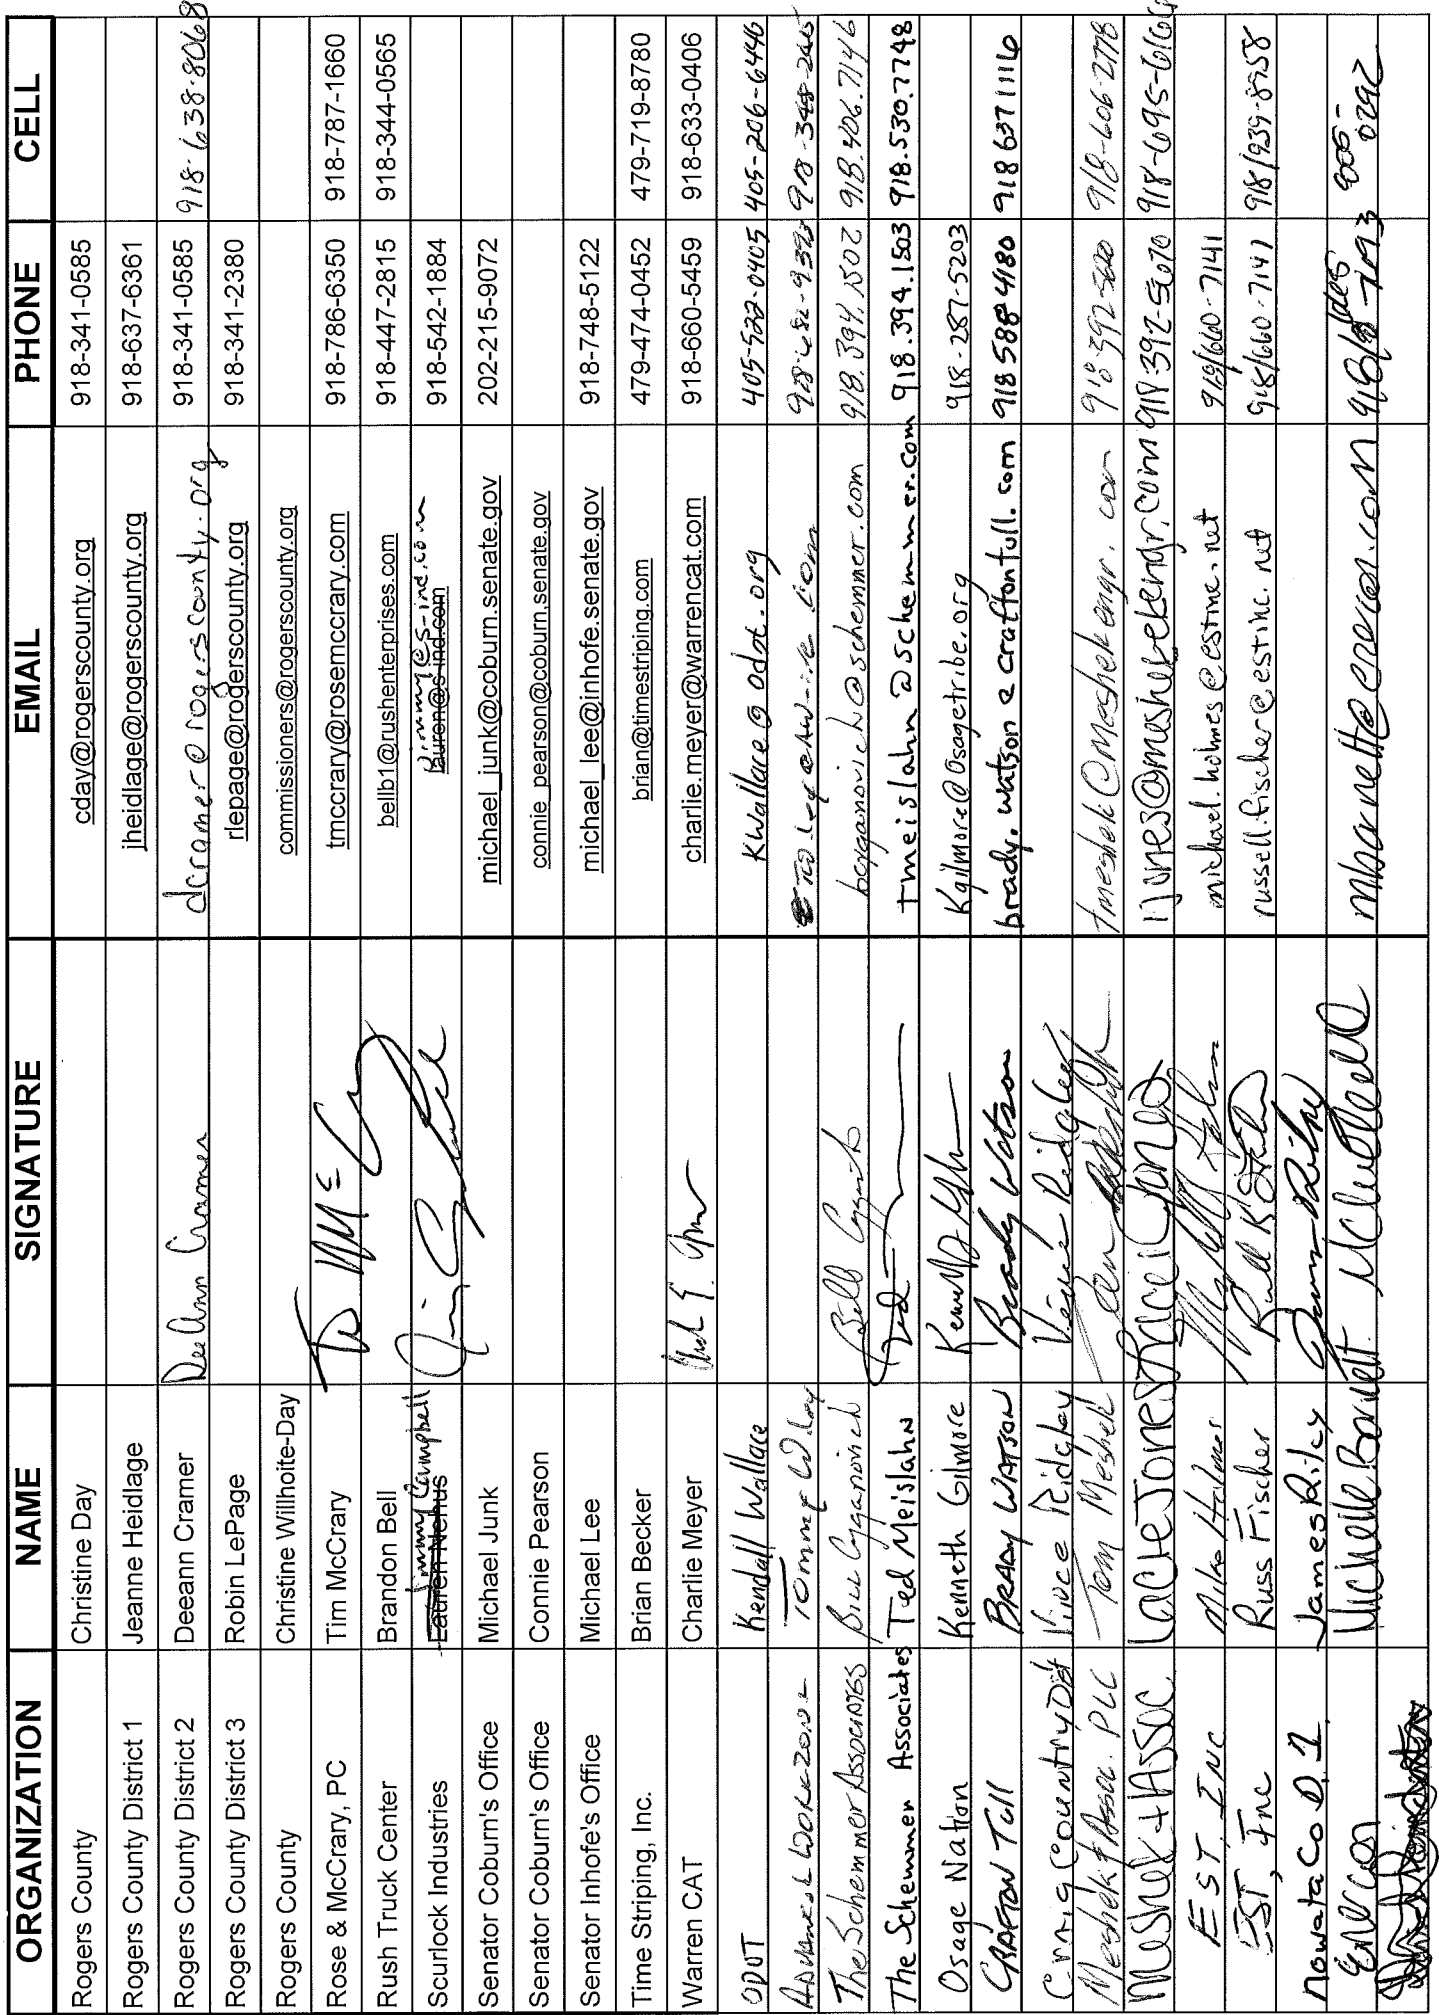 ORGANIZATION NAME SIGNATURE EMAIL PHONE CELL
Rogers County Christine Day cday@rogerscounty.org 918-341-0585
Rogers County District 1 Jeanne Heidlage jheidlage@rogerscounty.org 918-637-6361
Rogers County District 2 Deeann Cramer DeeAnn Cramer dcramer@rogerscounty.org 918-341-0585 918-638-8068
Rogers County District 3 Robin LePage rlepage@rogerscounty.org 918-341-2380
Rogers County Christine Willhoite-Day commissioners@rogerscounty.org
Rose & McCrary, PC Tim McCrary tmccrary@rosemccrary.com 918-786-6350 918-787-1660
Rush Truck Center Brandon Bell bellb1@rushenterprises.com 918-447-2815 918-344-0565
Scurlock Industries Lauren Nehus Jimmy Campbell lauren@s-ind.com jimmy@s-ind.com 918-542-1884
Senator Coburn's Office Michael Junk michael_junk@coburn.senate.gov 202-215-9072
Senator Coburn's Office Connie Pearson connie_pearson@coburn,senate.gov
Senator Inhofe's Office Michael Lee michael_lee@inhofe.senate.gov 918-748-5122
Time Striping, Inc. Brian Becker brian@timestriping.com 479-474-0452 479-719-8780
Warren CAT Charlie Meyer charlie.meyer@warrencat.com 918-660-5459 918-633-0406
ODOT Kendall Wallace KWallace@odot.org 405-522-0405 405-206-6440
Tommy
The Schemmer Associates Bill Cyganovich bcyganovich@schemmer.com 918.394.1502 918.406.7146
The Schemmer Associates Ted Meislahn Ted tmeislahn@schemmer.com 918.394.1503 918.530.7748
Osage Nation Kenneth Gilmore Kgilmore@osagetribe.org 918-287-5203
CRAFTON Tull BRADY WATSON Brady Watson brady.watson@craftontull.com 918 588 4180 918 637 1116
Craig County Vince Ridgley Vince Ridgley
Meshek & Assoc. PLC Tom Meshek tmeshek@meshekengr.com 918-606-2778
Meshek + Assoc Lacie Jones Lacie Jones ljones@meshekengr.com
EST, INC Mike Holmes michael.holmes@estinc.net 918/660-7141
EST, Inc Russ Fischer russell.fischer@estinc.net 918/660-7141 918/939-8958
Nowata Co D. 1 James Riley
Enercon Michelle Barnett Michelle mbarnett@enercon.com